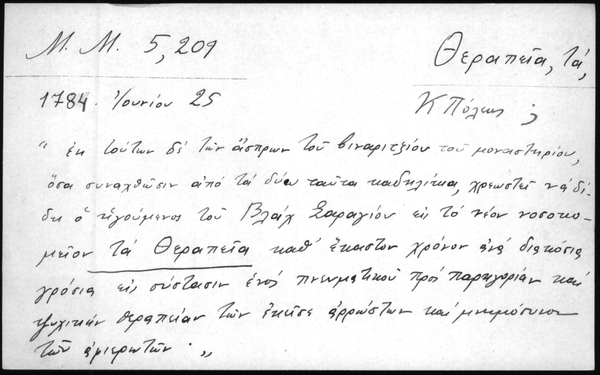 Μ. Μ. 5, 209
Θεραπεῖα, τά,
1784 Ἰουνίου 25
ΚΠόλεως ;
" ἐκ τούτων δέ τῶν ἄσπρων τοῦ βιναριτζίου τοῦ μοναστηρίου,
ὅσα συναχθῶσιν ἀπό τά δύω ταῦτα καδηλίκια, χρεωστεῖ νά δί-
δῃ ὁ ἡγούμενος τοῦ Βλάχ Σαραγίου εἰς τό νέον νοσοκο-
μεῖον τά Θεραπεῖα καθ' ἕκαστον χρόνον ἀνά διακόσια
γρόσια εἰς σύστασιν ἑνός πνευματικοῦ πρός παρηγορίαν καί
ψυχικήν θεραπείαν τῶν ἐκεῖσε ἀρρώστων καί μνημόσυνον
τῶν ἀφιερωτῶν. "